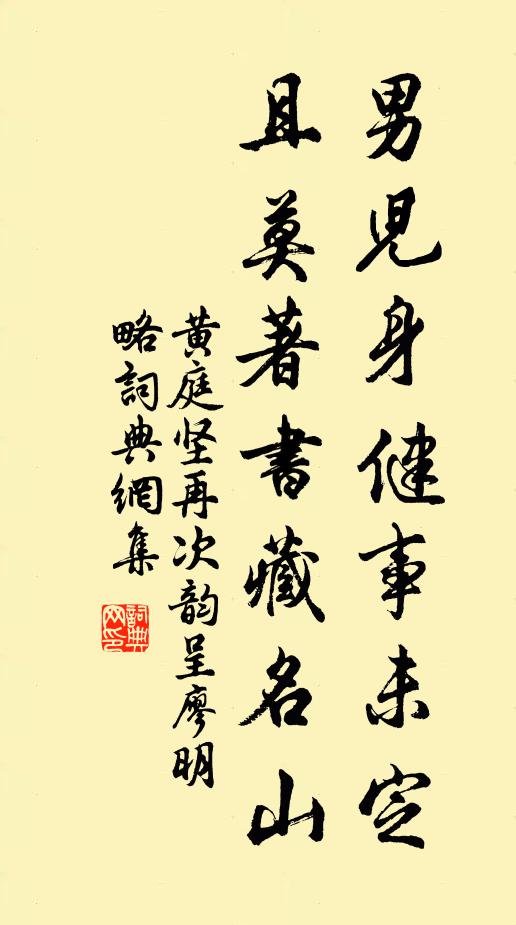 男兒身健事未定
且莫著書藏名山
黄庭坚再次韵呈廖明
略詞典網集
詞典
网印